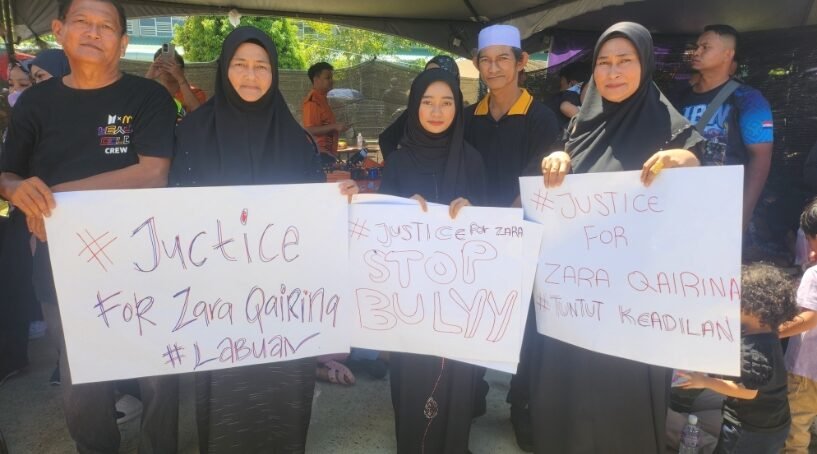 CREW
# Juctice
FOR Zara Qairina
# LABUAN
# JUSTICE FOR ZARA
STOP
BULYY
# JUSTICE
FOR
ZARA QAIRINA
# TUNTUT KEADILAN